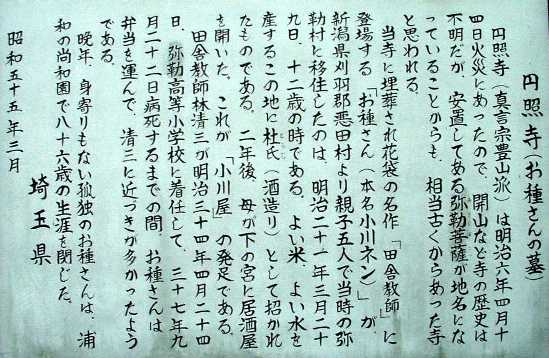 円照寺(お種さんの墓)
円照寺(真言宗豊山派)は明治六年四月十
四日火災にあったので、開山など寺の歴史は
不明だが、安置してある弥勒菩薩が地名にな
っていることからも、相当古くからあった寺
と思われる。
当寺に埋葬され花袋の名作「田舎教師」に
登場する「お種さん(本名小川ネン)」が、
新潟県刈羽郡悪田村より親子五人で当時の弥
勒村に移住したのは、明治二十一年三月二十
九日、十二歳の時である。よい米、よい水を
産するこの地に杜氏(酒造り)として招かれ
たものである。二年後、母が下の宮に居酒屋
を開いた。これが「小川屋」の発足である。
田舎教師林清三が明治三十四年四月二十四
日、弥勒高等小学校に着任して、三十七年九
月二十二日病死するまでの間、お種さんは
弁当を運んで、清三に近づきが多かったよう
である。
晩年、身寄りもない孤独のお種さんは、浦
和の尚和園で八十六歳の生涯を閉じた。
埼玉県
昭和五十五年三月